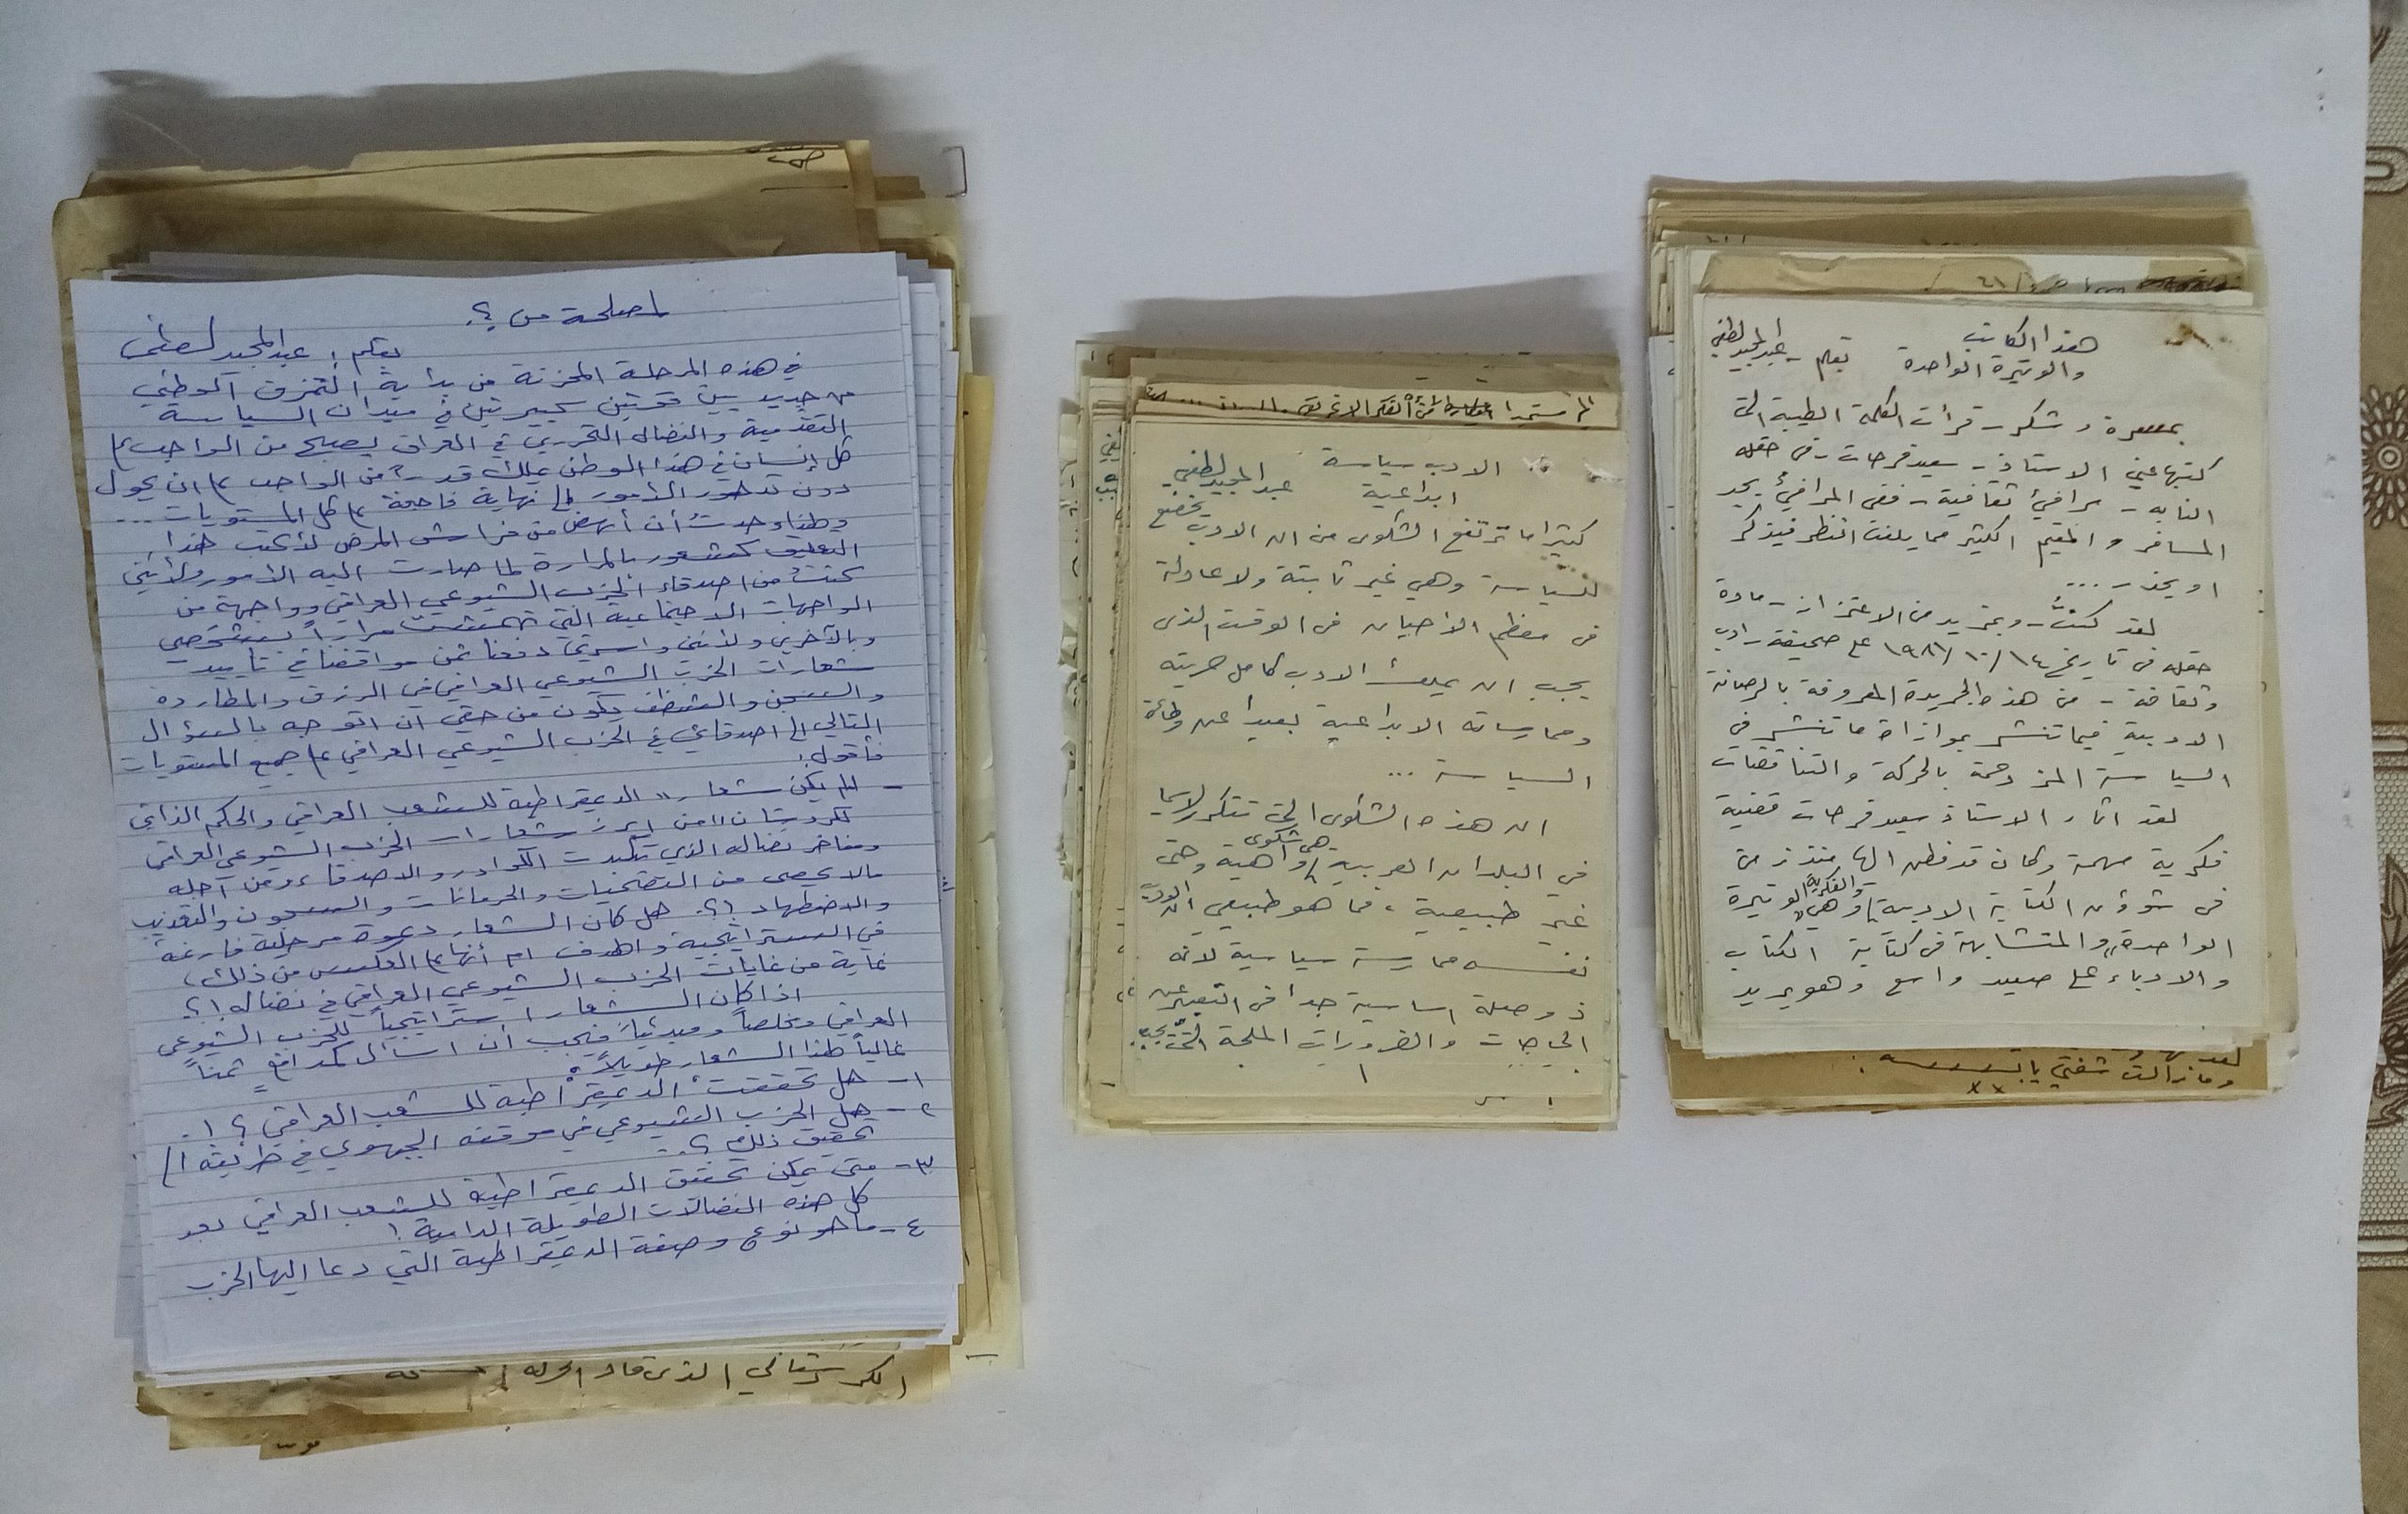 لمصلحة من ؟.
بقلم : عبدالمجيد لطفي
في هذه المرحلة المحزنة من بداية التمزق الوطني
من جديد بين قوتين كبيرتين في ميدان السياسة
التقدمية والنضال التحرري في العراق يصبح من الواجب على
كل إنسان في هذا الوطن يملك قدراً من الواجب ان يحول
دون تدهور الأمور الى نهاية فاجعة على كل المستويات ...
وهنا وجدتُ أن أنهض من فراش المرض لأكتب هذا
التعليق كشعور بالمرارة لما صارت اليه الأمور ولأنني
كنتُ من اصدقاء الحزب الشيوعي العراقي وواجهة من
الواجهات الاجتماعية التي تهمشت مراراً بشخصي
وبالآخرين ولأنني واسرتي دفعنا ثمن مواقفنا في تأييد
شعارات الحزب الشيوعي العراقي في الرزق والمطاردة
والسجن والشظف يكون من حقي ان اتوجه بالسؤال
التالي الى اصدقائي في الحزب الشيوعي العراقي على جميع المستويات
فأقول:
- ألم يكن شعار ,, الديمقراطية للشعب العراقي والحكم الذاتي
لكردستان ,, من ابرز شعارات الحزب الشيوعي العراقي
ومفاخر نضاله الذي تكبدت الكوادر والاصدقاء ومن أجله
مالا يحصى من التضحيات والحرمانات والسجون والتعذيب
والاضطهاد !؟. هل كان الشعار دعوة مرحلية فارغة
في الستراتيجية والهدف ام أنها على العكس من ذلك،
غاية من غايات الحزب الشيوعي العراقي في نضاله !؟
اذا كان الشعار ستراتيجياً للحزب الشيوعي
العراقي ومخلصاً ومبدئياً فيجب أن اسأل كمدافع ثمناً
غالياً لهذا الشعار طويلاً.
١- هل تحققت الديمقراطية للشعب العراقي ؟!.
٢- هل الحزب الشيوعي في موقفه الجبهوي في طريقه الى
تحقيق ذلك ؟.
٣- متى يمكن تحقيق الديمقراطية للشعب العراقي بعد
كل هذه النضالات الطويلة الدامية !
٤- ما هو نوع وصفة الديمقراطية التي دعا اليها الحزب
الادب سياسة
ابداعية
عبدالمجيد لطفي
كثيرا ما ترتفع الشكوى من ان الادب يخضع
للسياسة وهي غير ثابتة ولا عادلة
في معظم الأحيان في الوقت الذي
يجب ان يملك الادب كامل حريته
وممارساته الابداعية بعيدا عن وطأة
السياسة ...
ان هذه الشكوى التي تتكرر لاسيما
في البلدان العربية هي شكوى واهية وحتى
غير طبيعية ، فما هو طبيعي ان الادب
نفسه ممارسة سياسية لانه
ذو صلة اساسية جدا في التعبير عن
الحاجات والضرورات الملحة التي يجب
١
هذا الكاتب
والوتيرة الواحدة
بقلم - عبدالمجيد لطفي
بمسرة وشكر - قرأت الكلمة الطيبة التي
كتبها عني الاستاذ - سعيد فرحات - في حقله
النابه - مرافئ ثقافية - ففي المرافئ يجد
المسافر والمقيم الكثير مما يلفت النظر فيتذكر
او يحذر ...
لقد كنتُ - وبمزيد من الاعتزاز - مادة
حقله في تاريخ ١٤/ ١٠/ ١٩٨٦ على صحيفة - ادب
وثقافة - من هذه الجريدة المعروفة بالرصانة
الادبية فيما تنشر بموازاة ما تنشر في
السياسة المزدحمة بالحركة والتناقضات
لقد اثار الاستاذ سعيد فرحات قضية
فكرية مهمة وكان قد فطن اليها منذ زمن
في شؤون الكتابة الادبية والفكرية وهي ,,الوتيرة
الواحدة,, والمتشابهة في كتابة الكتاب
والادباء على صعيد واسع وهو يريد
وما زالت شفتي يا